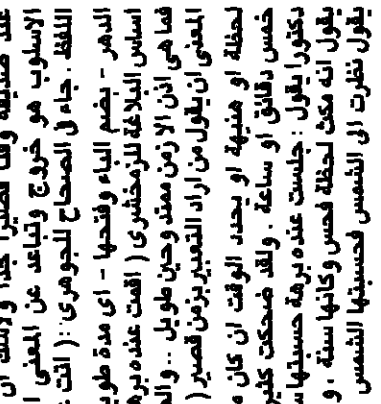 عند صديقه وقتا قصيرا جدا ولاشك ان
الاسلوب هو خروج وتباعد عن المعنى
اللفظ . جاء في الصحاح للجوهرى : ( اتت
الدهر - بضم الباء وفتحها - اى مدة
اساس البلاغة للزمخشرى ( اقمت عنده
فما هى اذن الا زمن ممتد وحين طويل ..
المعنى ان يقول من اراد التعبير بزمن قصير (
لحظة او هنيهة او يحدد الوقت ان كان
خمس دقائق او ساعة . ولقد ضحكت
دكتورا يقول : جلست عنده برهة حسبتها
يقول انه مكث لحظة فحس وكانها سنة . و
يقول نظرت الى الشمس فحسبتها الشمس